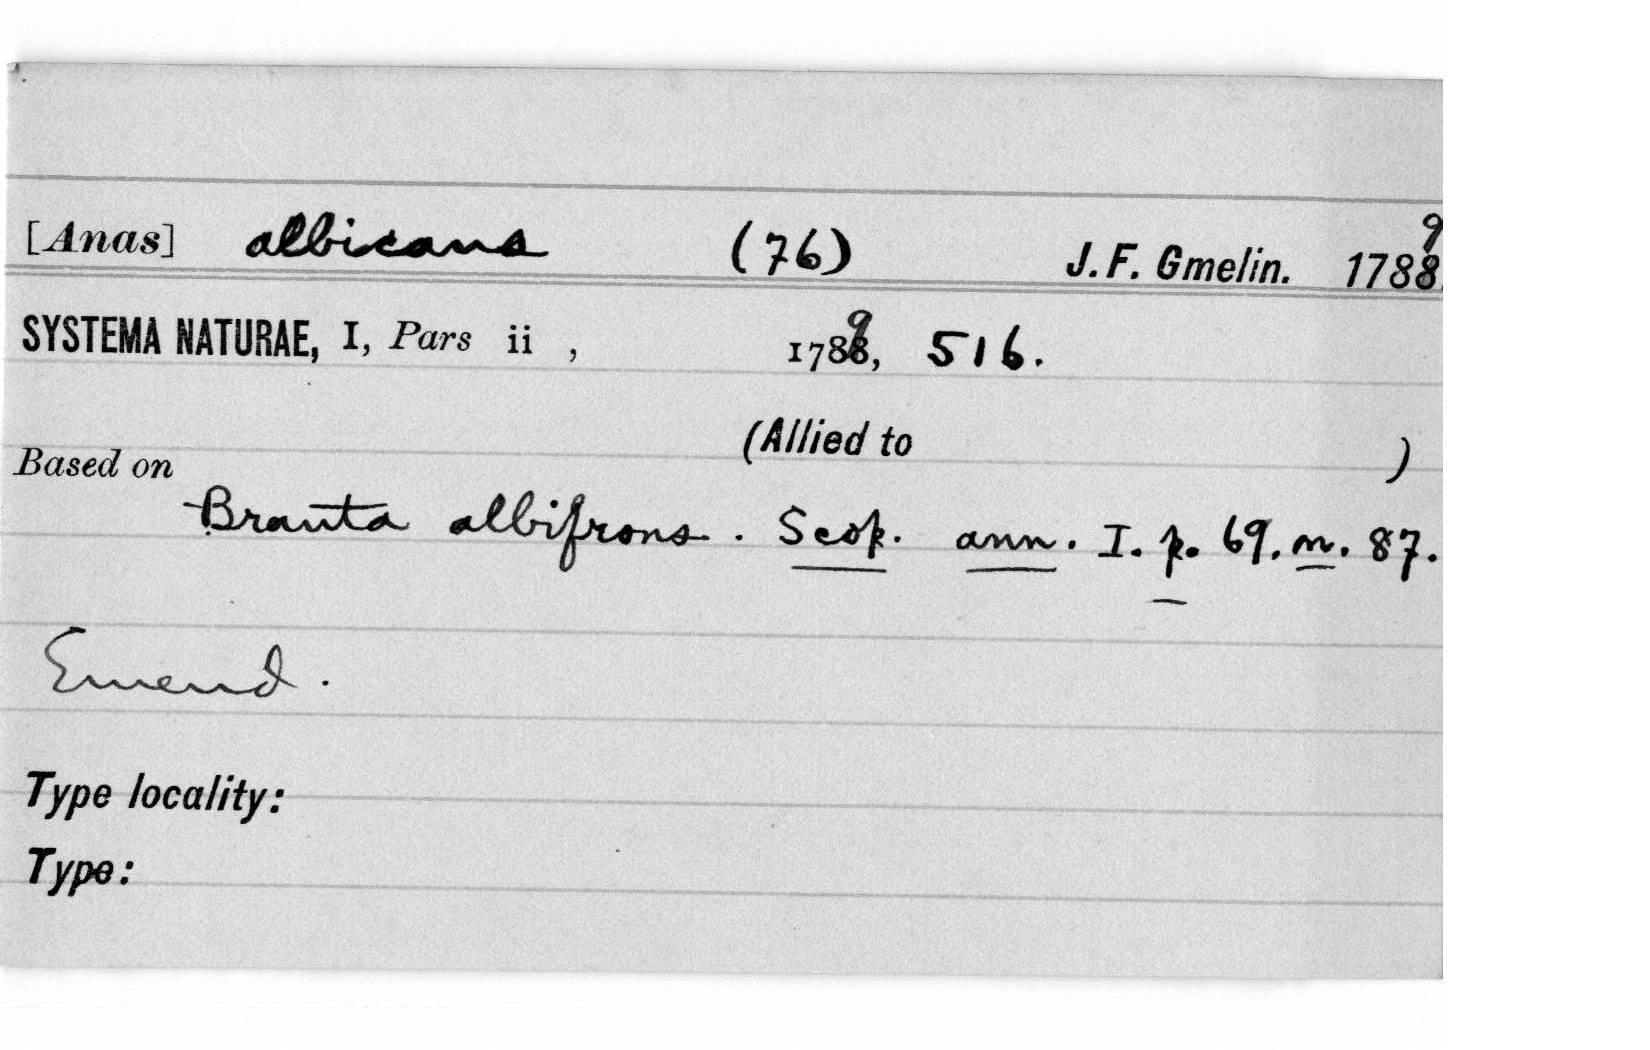 [Anas] albicans (76) J. F. Gmelin. 17889
SYSTEMA NATURAE, I, Pars ii , 17889, 516.
(Allied to )
Based on
Branta albifrons. Scop. ann. I. p. 69. n. 87.
Emend.
Type locality:
Type: